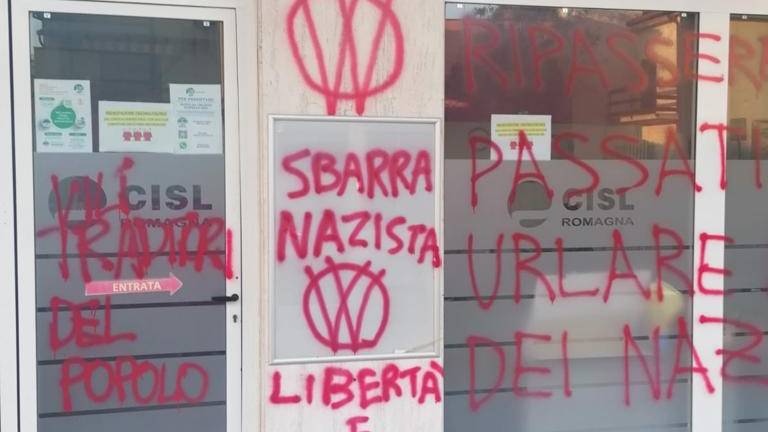 CISL
ROMAGNA
VILI
TRADITORI
ENTRATA
DEL
POPOLO
SBARRA
NAZISTA
LIBERTÀ
E
RIPASSERE
PASSATI
CISL
ROMAGNA
URLARE
DEI NAZ